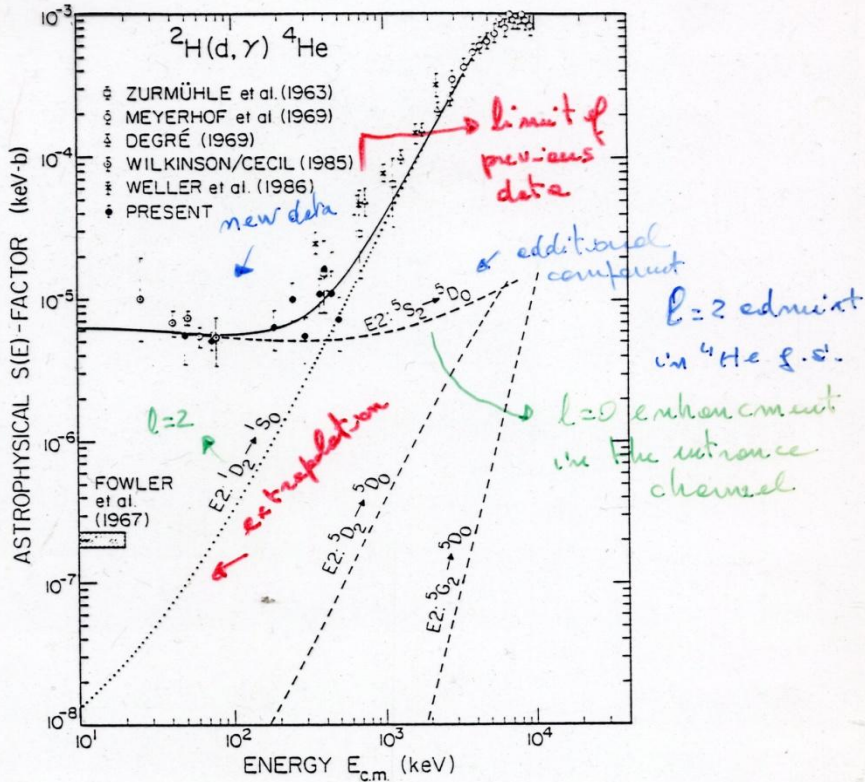 ²H(d,γ)⁴He
ZURMÜHLE et al. (1963)
MEYERHOF et al (1969)
DEGRÉ (1969)
WILKINSON/CECIL (1985)
WELLER et al. (1986)
PRESENT
new data
limit of
previous
data
additional
component
E2: ⁵S₂→⁵D₀
l=2 admixt
in ⁴He g.s.
l=0 enhancment
in the entrance
channel
l=2
E2: ¹D₂→¹S₀
extrapolation
E2: ⁵D₂→⁵D₀
E2: ⁵G₂→⁵D₀
FOWLER
et al.
(1967)
ASTROPHYSICAL S(E)-FACTOR (keV-b)
10⁻³
10⁻⁴
10⁻⁵
10⁻⁶
10⁻⁷
10⁻⁸
10¹ 10² 10³ 10⁴
ENERGY E_c.m. (keV)